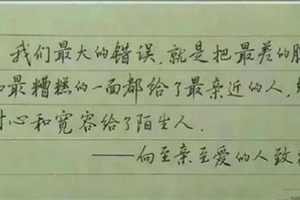 我们最大的错误,就是把最差的脾
和最糟糕的一面都给了最亲近的人,
耐心和宽容给了陌生人.
——向至亲至爱的人致